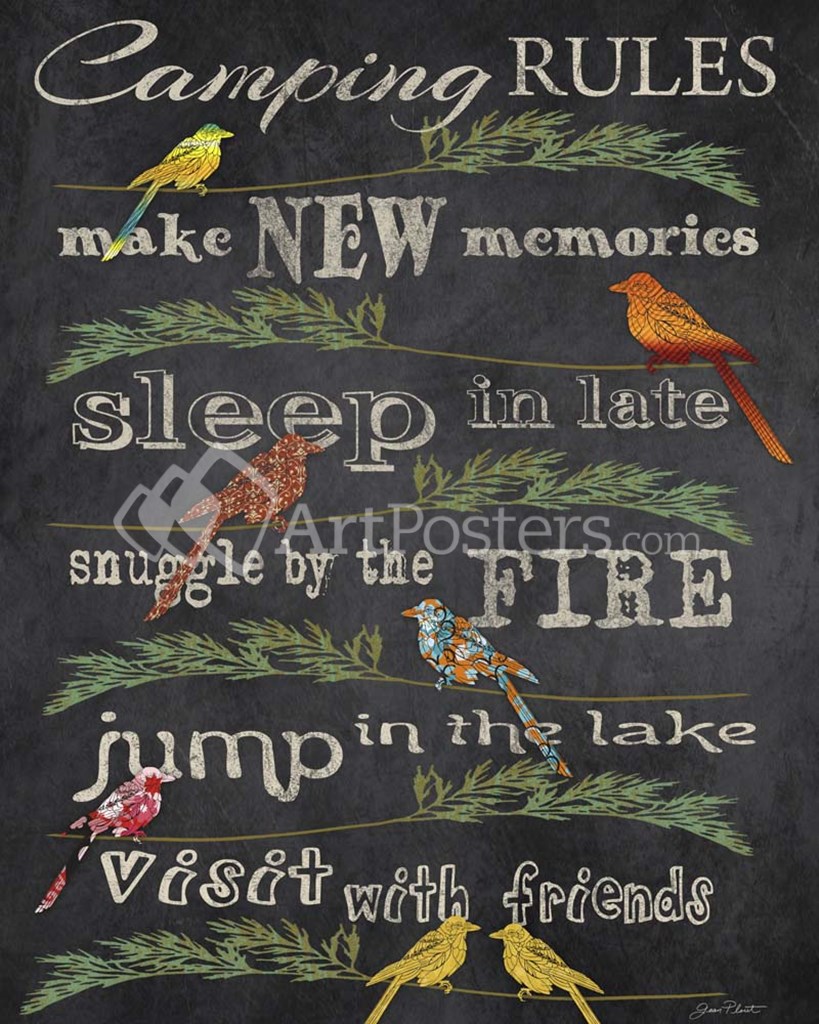 Camping RULES
make NEW memories
sleep in late
ArtPosters.com
snuggle by the FIRE
jump in the lake
visit with friends
Jean Plout